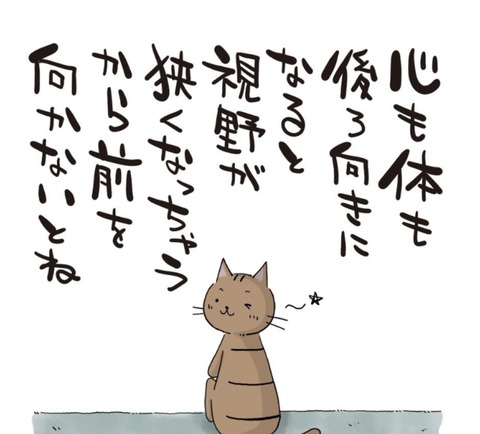 心も体も
後ろ向きに
なると
視野が
狭くなっちゃう
から前を
向かないとね